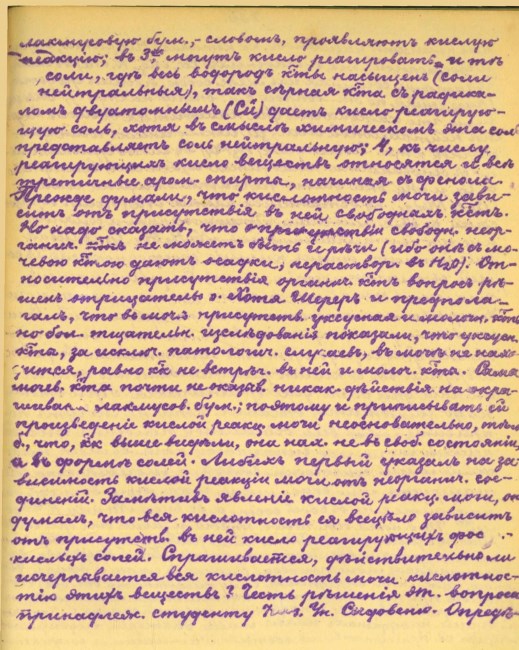 лакмусовую бум., – словомъ, проявляютъ кислую
реакцію; въ 3хъ, могутъ кисло реагировать и тѣ
соли, гдѣ весь водородъ к̃ты насыщенъ (соли
нейтральныя), такъ сѣрная к̃та съ радика-
ломъ двуатомнымъ (Cu) даетъ кисло реагирую-
щую соль, хотя въ смыслѣ химическомъ эта соль
представляетъ соль нейтральную; 4, къ числу
реагирующихъ кисло веществъ относятся всѣ
третичные аром. спирты, начиная съ фенола.
Прежде думали, что кислотность мочи зави-
ситъ отъ присутствія въ ней свободныхъ к̃тъ.
Но надо сказать, что о присутствіи свободн. неор-
ганич. к̃тъ не можетъ быть и рѣчи (ибо онѣ съ мо-
чевою к̃тою даютъ осадки, нераствор. въ H2O). От-
носительно присутствія органич. к̃тъ вопросъ рѣ-
шенъ отрицательно. Хотя Шереръ и предпола-
галъ, что въ мочѣ присутств. уксусная и молочн. к̃ты,
но бол. тщательн. изслѣдованія показали, что уксусн.
к̃та, за исключ. патологич. случаевъ, въ мочѣ не нахо-
дится, равно к̃к не встрѣч. въ ней и молоч. к̃та. Сама
мочев. к̃та почти не оказыв. никак. дѣйствія на окра-
шиван. лакмусов. бум.; поэтому и приписывать ей
произведеніе кислой реакц. мочи неосновательно,
б., что, к̃к выше видѣли, она нах. не въ своб. состояніи,
а въ формѣ солей. Либихъ первый указалъ на за-
висимость кислой реакціи мочи отъ неорганич. сое-
диненій. Замѣтивъ явленіе кислой реакц. мочи, онъ
думалъ, что вся кислотность ея всецѣло зависитъ
отъ присутств. въ ней кисло реагирующихъ фос
кислыхъ солей. Спрашивается, дѣйствительно ли
исчерпывается вся кислотность мочи кислотнос-
тію этихъ веществъ? Честь рѣшенія эт. вопроса
принадлеж. студенту Ун. Опредѣ-